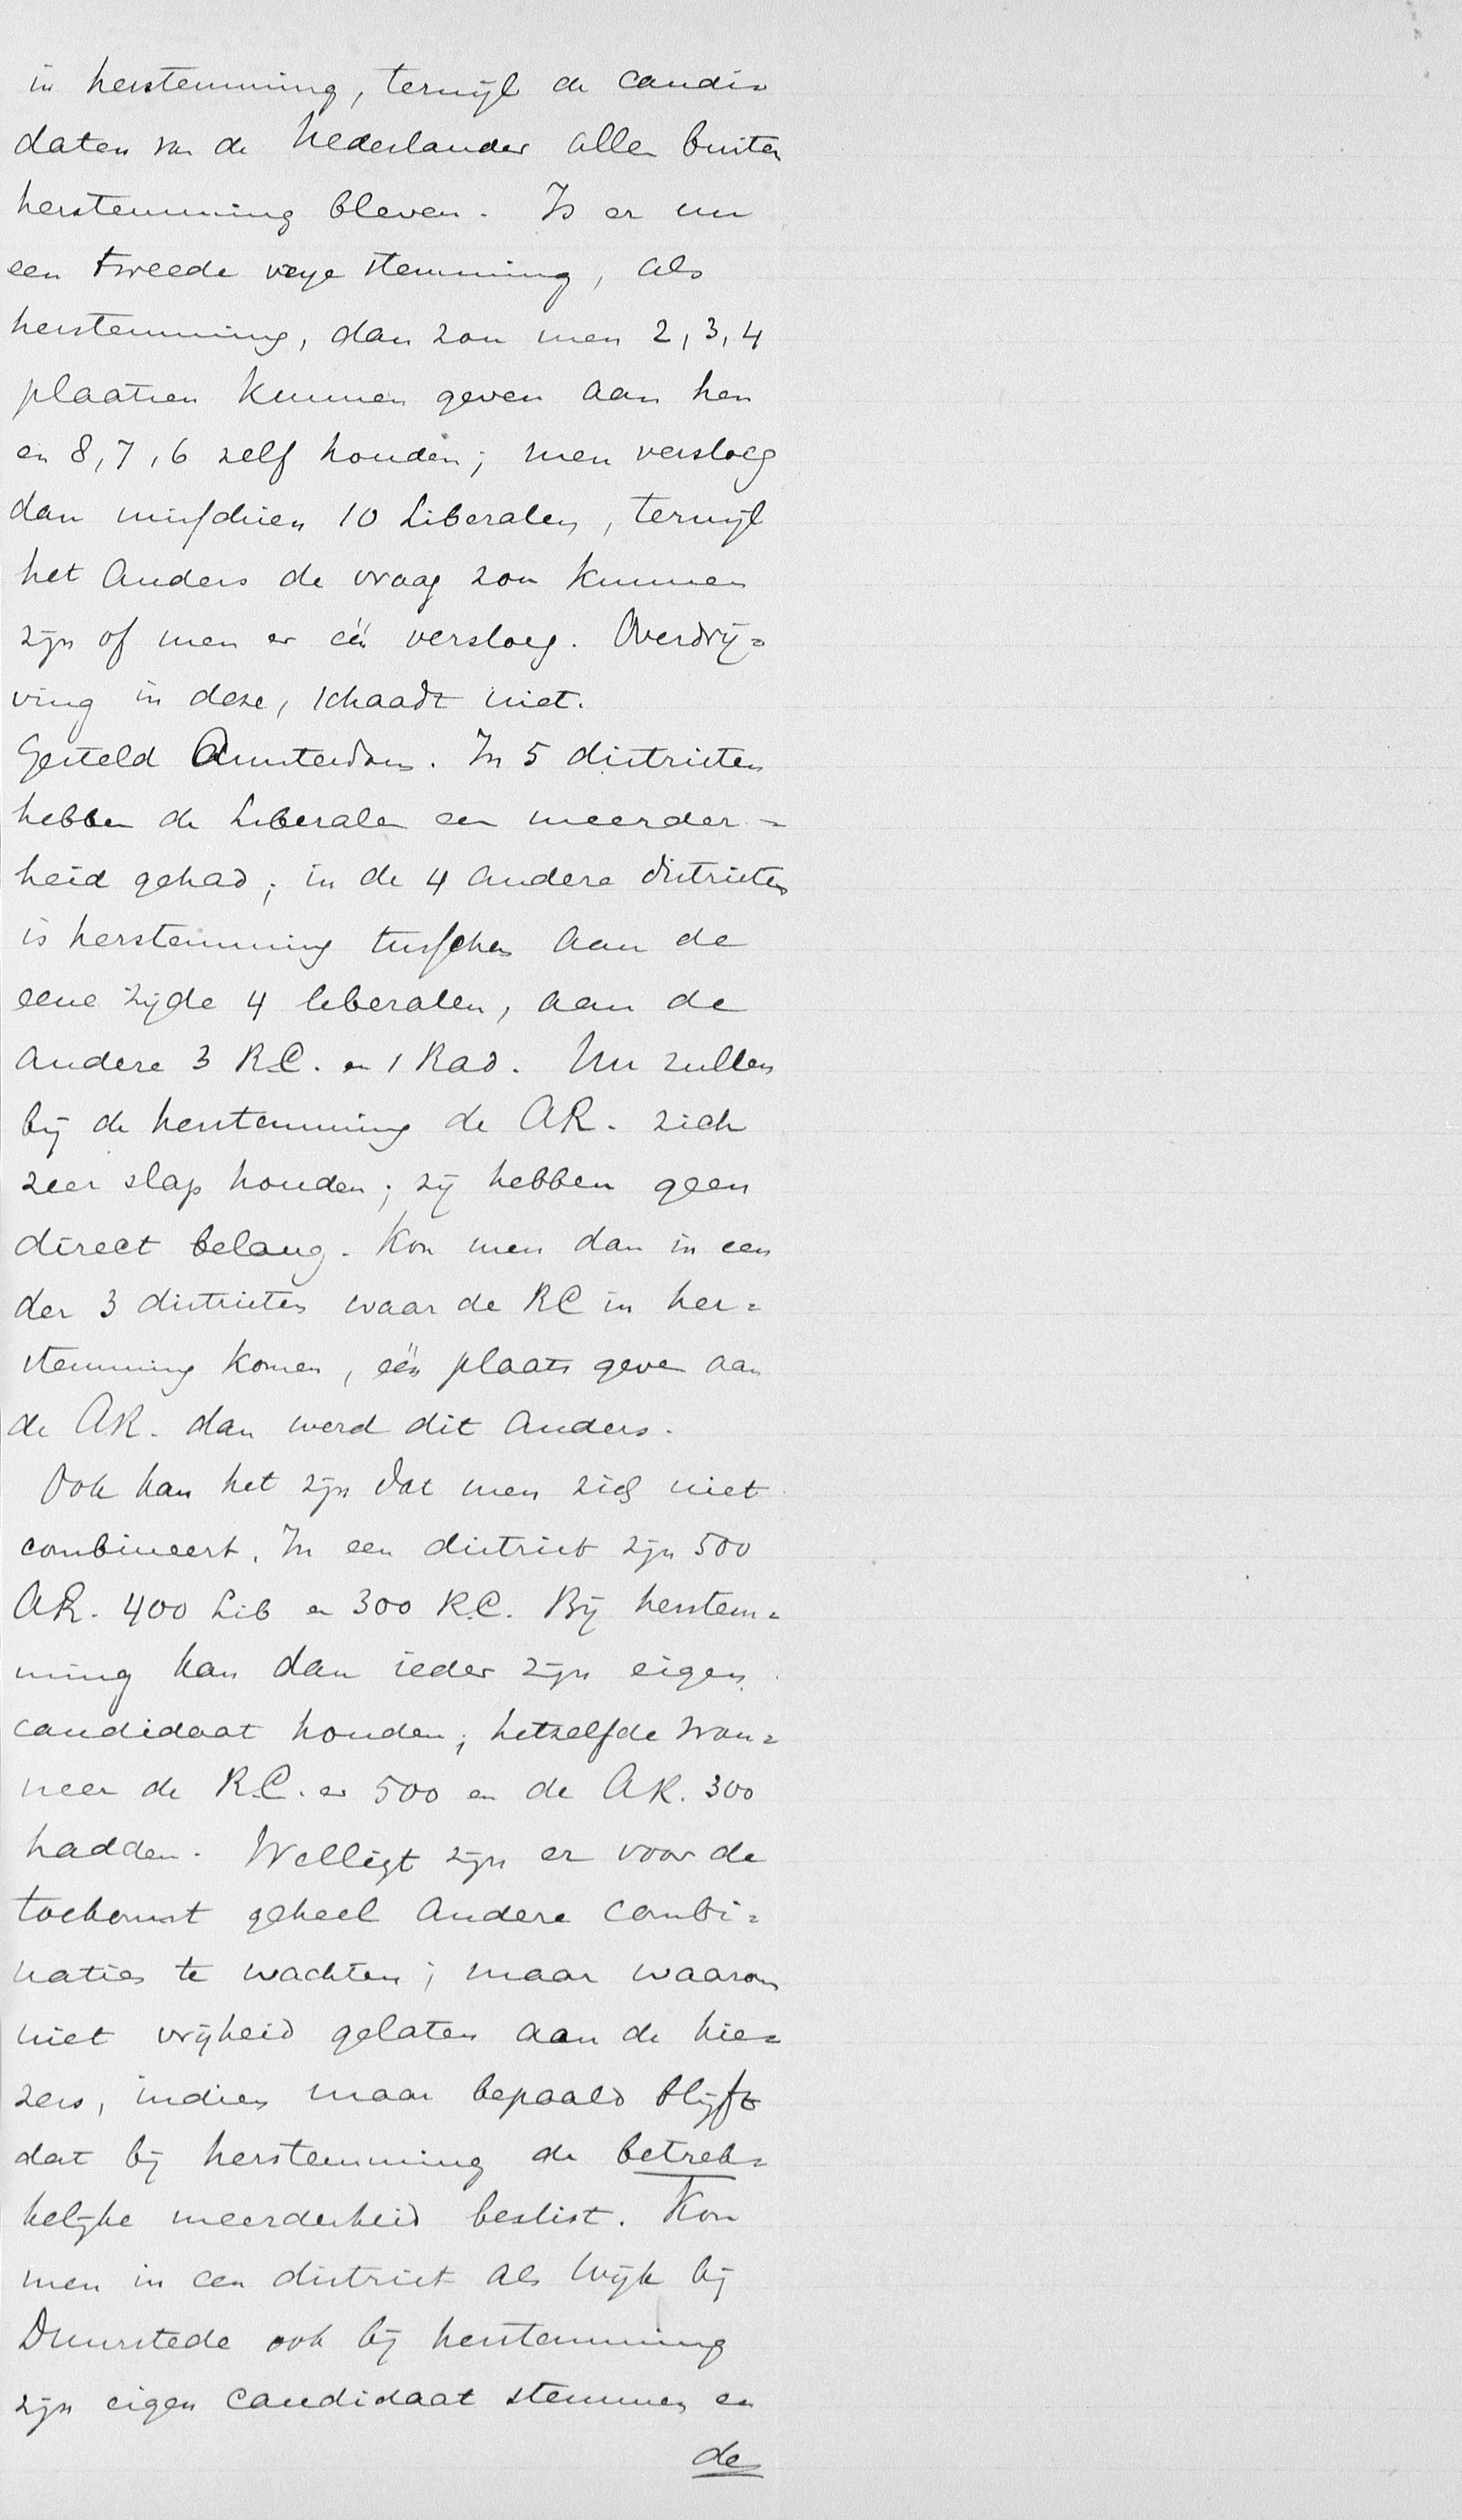 in herstemming, terwijl de candi=
daten van de Nederlander allen buiten
herstemming bleven. Is er nu
een tweede vrije stemming, als
herstemming, dan zou men 2, 3, 4
plaatsen kunnen geven aan hen
en 8, 7, 6 zelf houden; men versloeg
dan misschien 10 Liberalen, terwijl
het anders de vraag zou kunnen
zijn of men er één versloeg. Overdrij=
ving in deze, schaadt niet.
Gesteld Amsterdam. In 5 districten
hebben de Liberalen een meerder=
heid gehad; in de 4 andere districten
is herstemming tusschen aan de
eene zijde 4 liberalen, aan de
andere 3 R.C. en 1 Rad. Nu zullen
bij de herstemming de AR. zich
zeer slap houden; zij hebben geen
direct belang. Kon men dan in een
der 3 districten waar de RC in her=
stemming komen, één plaats geven aan
de AR. dan werd dit anders.
Ook kan het zijn dat men zich niet
combineert. In een district zijn 500
AR. 400 Lib en 300 R.C. Bij herstem=
ming kan dan ieder zijn eigen
candidaat houden; hetzelfde wan=
neer de R.C. er 500 en de AR. 300
hadden. Welligt zijn er voor de
toekomst geheel andere combi=
naties te wachten; maar waarom
niet vrijheid gelaten aan de kie=
zers, indien maar bepaald blijft
dat bij herstemming de betrek=
kelijke meerderheid beslist. Kon
men in een district als Wijk bij
Duurstede ook bij herstemming
zijn eigen candidaat stemmen en
de